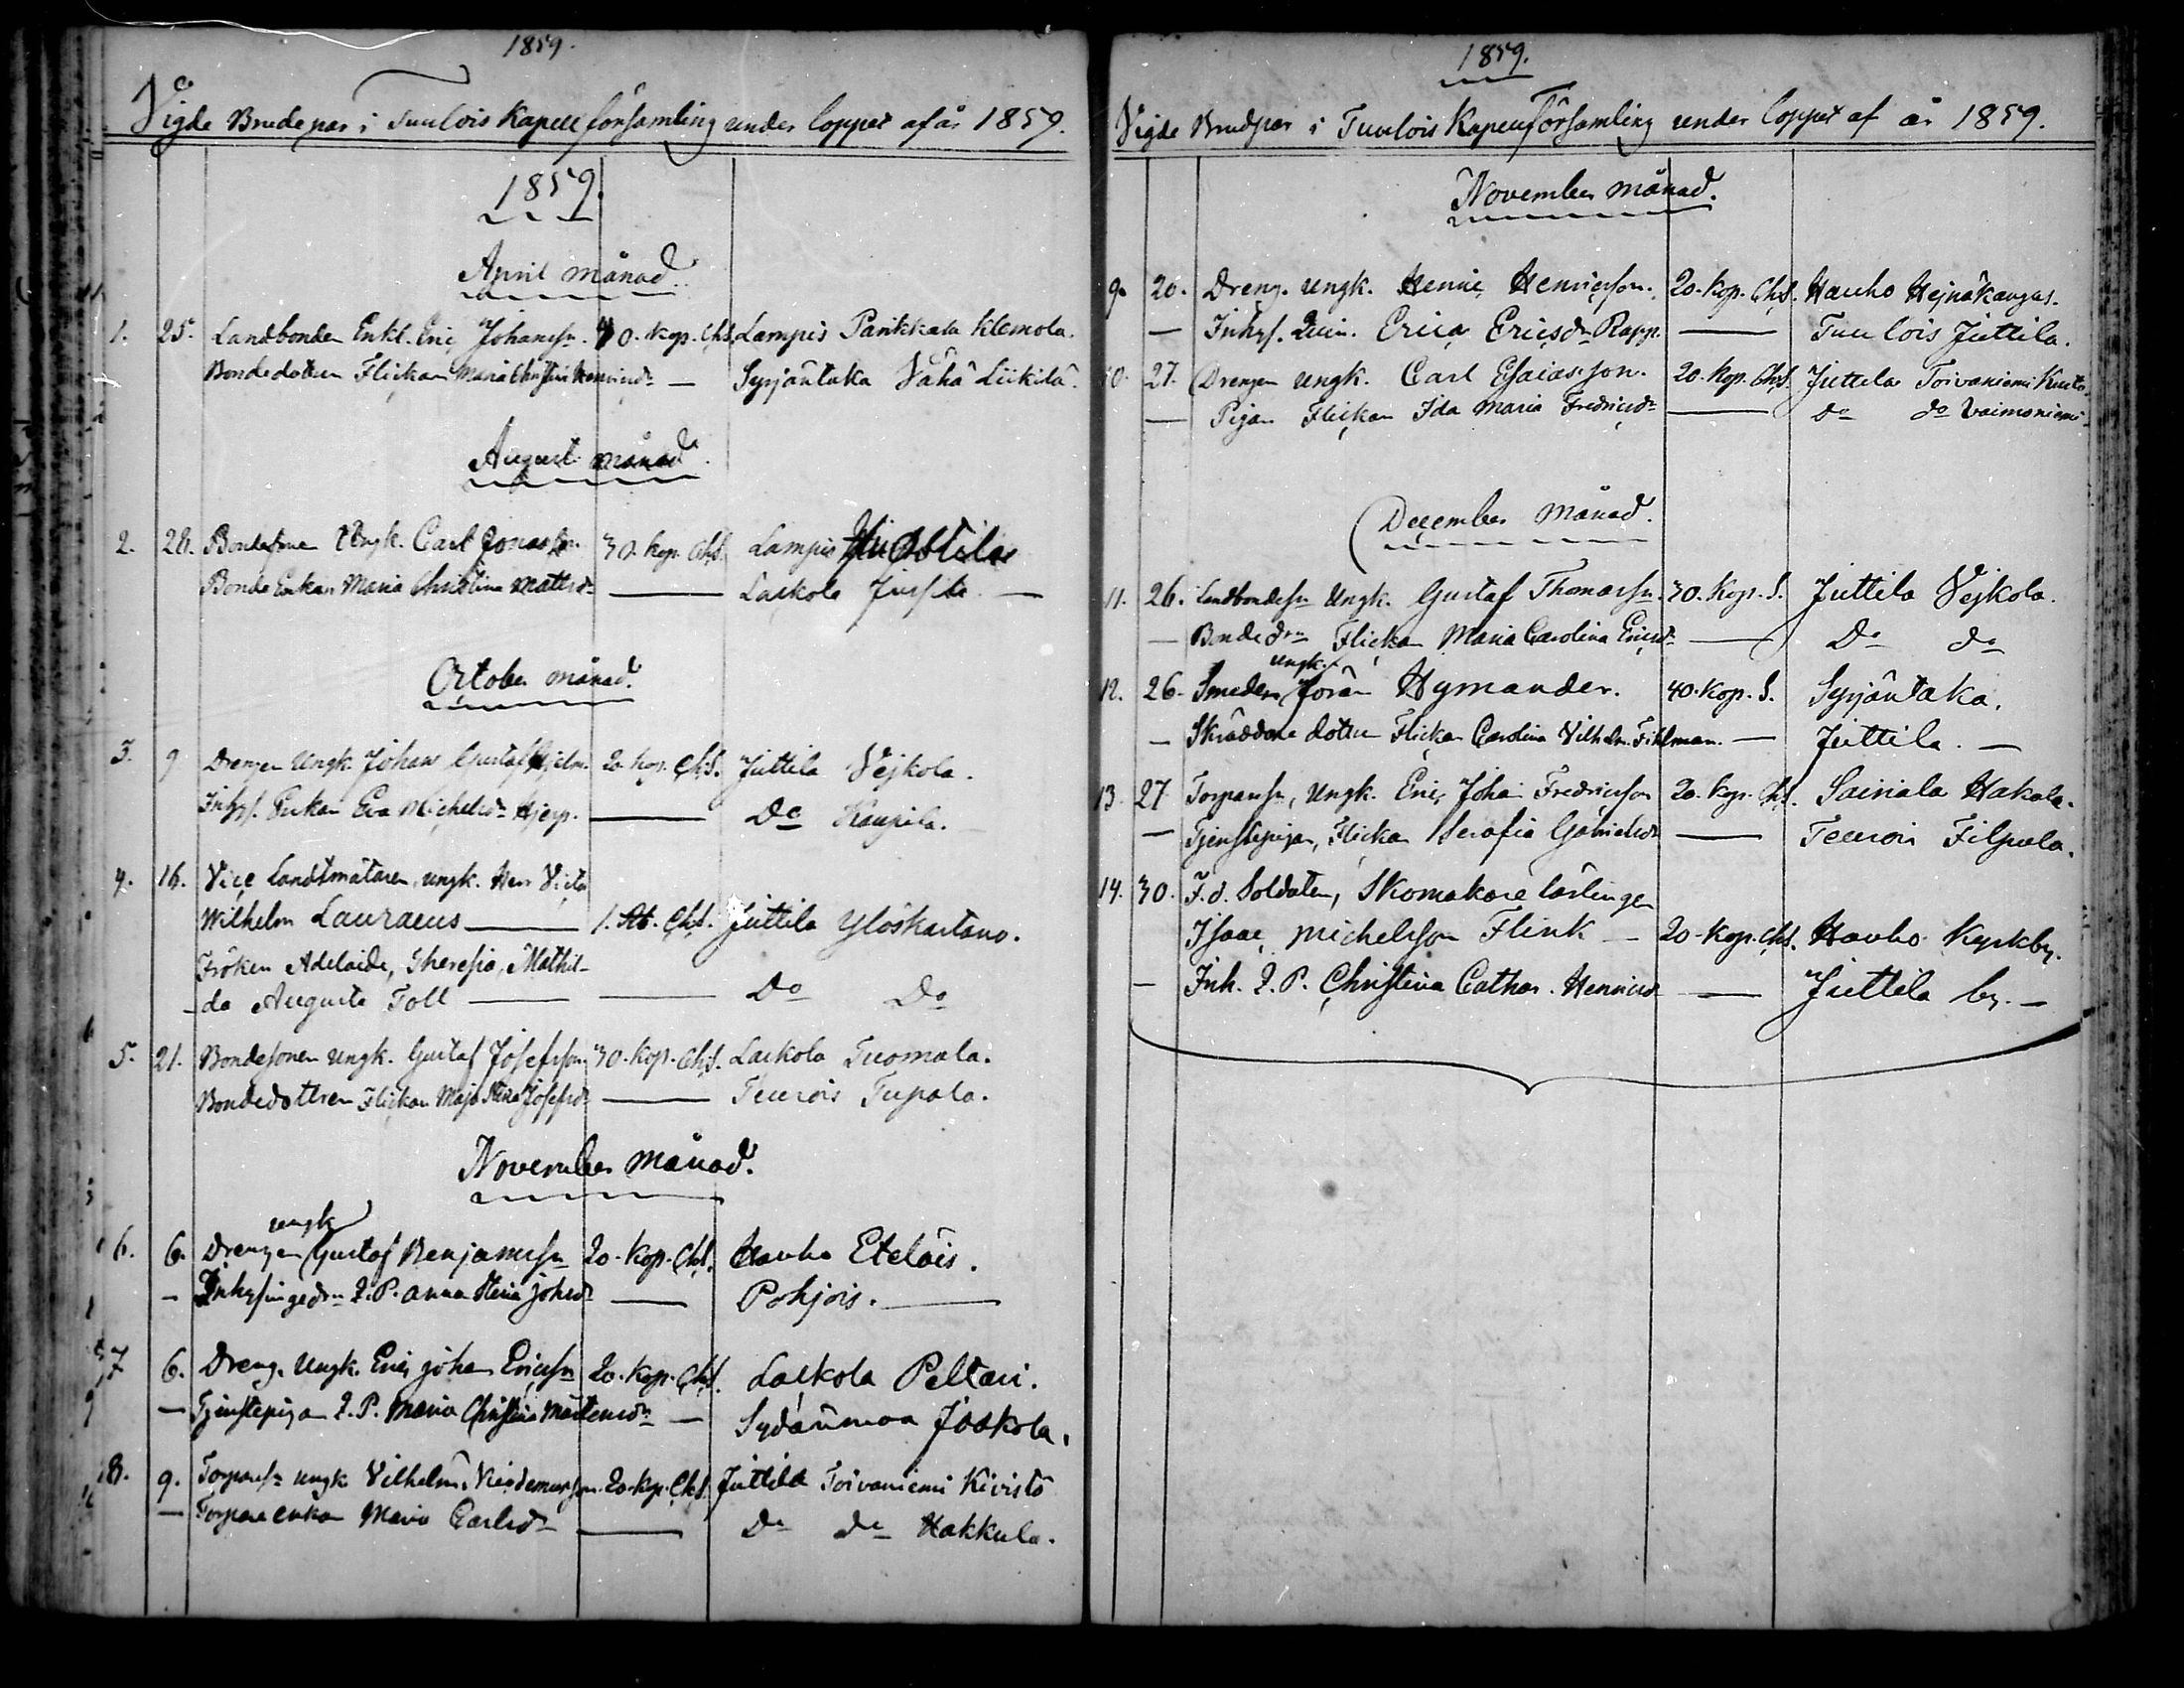 1859.
Vigde Brudepar i Tuulois Kapell församling under loppet af år 1859.
1859.
April månad.
1. 25. Landbonden Enkl. Eric Johansson. 40. Kop. Ch.S. Lampis Pankkala Klemola.
Bondedottren Flickan Maria Christina Henricsdr — Syrjäntaka Vähä Liikilä.
August månad.
2. 28. Bondesonen Ungk. Carl Jonasson 30. Kop. Ch.S. Lampis
Bonde Enkan Maria Christina Mattsdr — Laskola Jussila —
October månad.
3. 9 Drengen Ungk. Johan Gustaf Hjelm. 20. Kop. Ch.S. Juttila Vejkola.
Inhys. Enkan Eva Michelsdr Hjerp. — Do Kaupila.
4. 16. Vice Landtmätaren, ungk. Herr Victor
Wilhelm Lauraeus — 1. Rb. Ch.S. Juttila Ylöskartano.
Fröken Adelaide, Theresia, Mathil-
da Augusta Toll — — Do Do
5. 21. Bondesonen Ungk. Gustaf Josefsson. 30. Kop. Ch.S. Laskola Tuomala.
Bondedottren Flickan Maja Stina Josefsdr — Teurois Tupala.
November månad.
ungk
6. 6. Drengen Gustaf Benjamsson 20. Kop. Ch.S. Hauho Eteläis.
— Inhysingedrn Q.P. Anna Stina Johsdr — Pohjois. —
7 6. Dreng. Ungk. Eric Johan Ericsson 20. Kop. Ch.S. Laskola Peltari.
— Tjenstepigan Q.P. Maria Christina Mårtensdr — Sydänmaa Jaakola.
8. 9. Torparesn ungk Vilhelm 20. Kop. Ch.S. Juttila Toivaniemi Kivistö
— Torpare enkan Maria Carlsdr — Do do Hakkula.
1859.
Vigde Brudpar i Tuulois Kapellförsamling under loppet af år 1859.
November månad.
9. 20. Dreng. ungk. Henric Henricsson. 20. Kop. Ch.S. Hauho Hejnäkangas.
— Inhys. Qvin. Erica Ericsdr Rapp. — Tuulois Juttila.
10. 27. Drengen ungk. Carl Esaiasson. 20. Kop. Ch.S. Juttila Toivaniemi
— Pigan Flickan Ida Maria Fredricsdr — Do do Vaimoniemi
December månad.
11. 26. Landbondesn Ungk. Gustaf Thomasson. 30. Kop. S. Juttila Vejkola.
— Bonde drn Flickan Maria Carolina Ericsdr — Do do
ungk.
12. 26. Smeden Jöran Hymander. 40. Kop. S. Syrjäntaka.
— Skräddare dotter Flickan Carolina Vilhelm. Fihlman. — Juttila. —
13. 27 Torparesn, Ungk. Eric Johan Fredricsson 20. Kop. Ch.S. Sairiala Hakala.
— Tjenstepigan, Flickan Serafia Gabrielsdr — Teurois Filpula.
14. 30. F.d. Soldaten, Skomakare lärlingen
Isaac Michelsson Flink — 20. Kop. Ch.S. Hauho Kyrkby.
— Inh. Q.P. Christina Cathar. Henricsdr — Juttila by. —